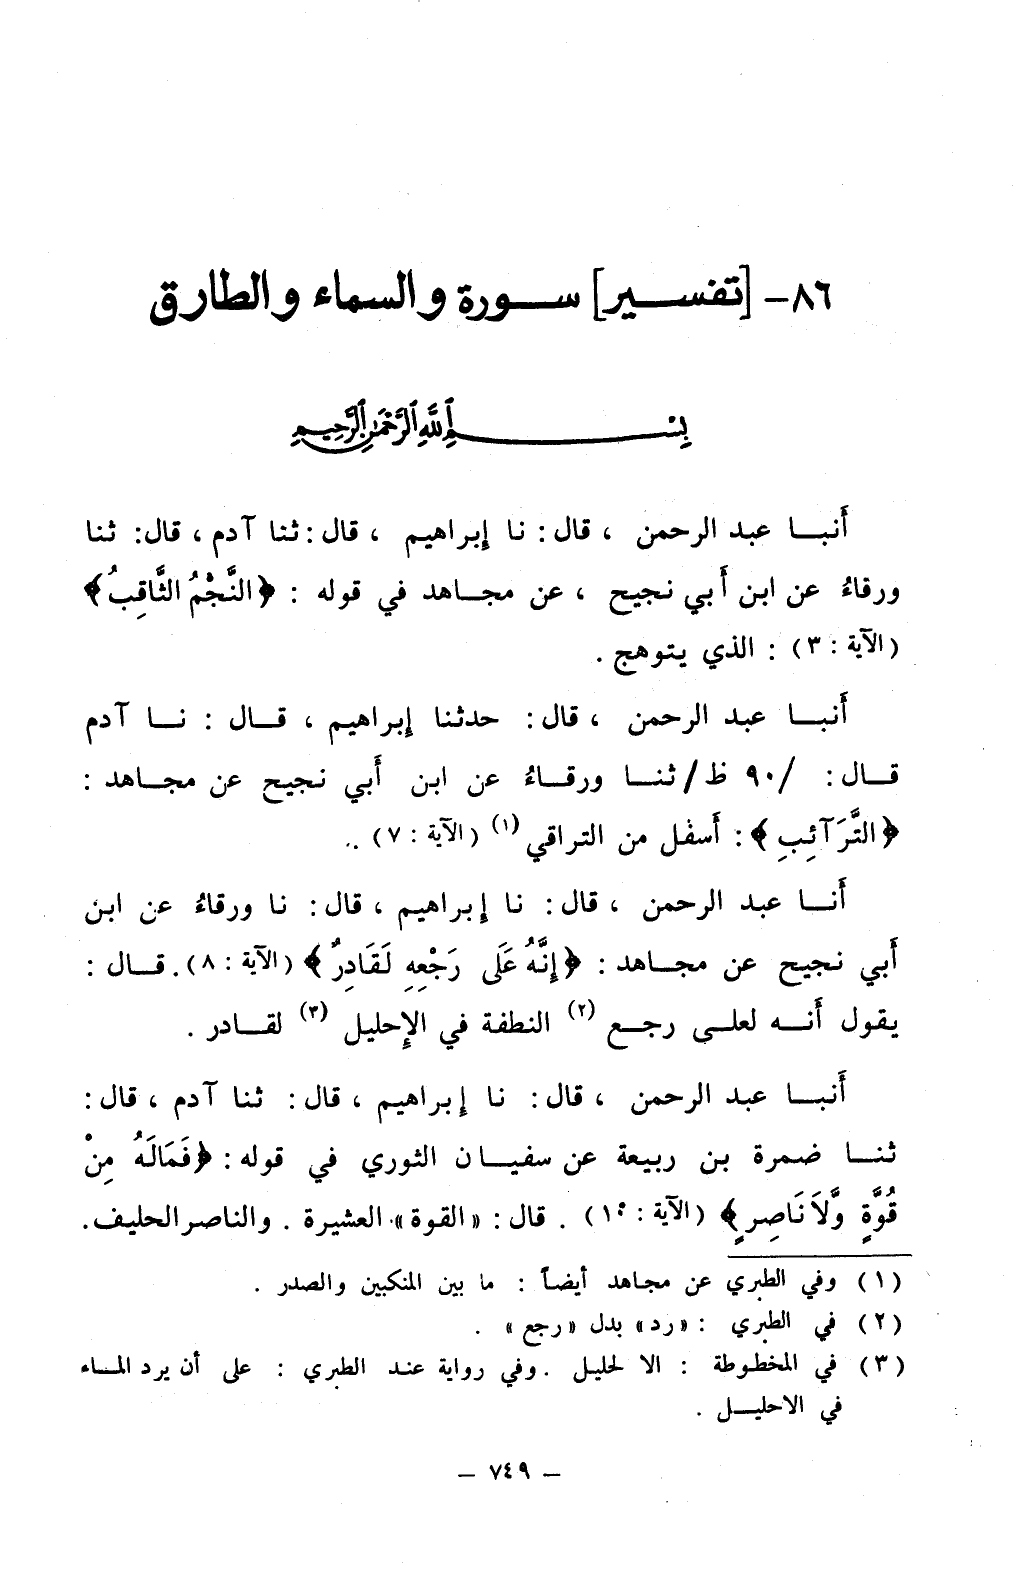 ٨٦- [تفسير] سورة والسماء والطارق
بِسْمِ اللَّهِ الرَّحْمَٰنِ الرَّحِيمِ
أَنبا عبد الرحمن ، قال : نا إبراهيم ، قال : ثنا آدم ، قال : ثنا
ورقاءُ عن ابن أَبي نجيح ، عن مجاهد في قوله : ﴿النَّجْمُ الثَّاقِبُ﴾
(الآية : ٣) : الذي يتوهج .
أَنبا عبد الرحمن ، قال : حدثنا إبراهيم ، قال : نا آدم
قال : /٩٠ ظ/ ثنا ورقاءُ عن ابن أَبي نجيح عن مجاهد :
﴿التَّرَآئِبِ﴾ : أَسفل من التراقي (١) (الآية : ٧) ..
أَنا عبد الرحمن ، قال : نا إبراهيم ، قال : نا ورقاءُ عن ابن
أَبي نجيح عن مجاهد : ﴿إِنَّهُ عَلَى رَجْعِهِ لَقَادِرٌ﴾ (الآية : ٨) . قال :
يقول أَنه لعلى رجع (٢) النطفة في الإحليل (٣) لقادر .
أَنبا عبد الرحمن ، قال : نا إبراهيم ، قال : ثنا آدم ، قال :
ثنا ضمرة بن ربيعة عن سفيان الثوري في قوله : ﴿فَمَالَهُ مِنْ
قُوَّةٍ وَّلاَ نَاصِرٍ﴾ (الآية : ١٠) . قال : «القوة» العشيرة . والناصر الحليف .
(١) وفي الطبري عن مجاهد أيضاً : ما بين المنكبين والصدر .
(٢) في الطبري : «رد» بدل «رجع» .
(٣) في المخطوطة : الا لحليل . وفي رواية عند الطبري : على أن يرد الماء
في الاحليل .
– ٧٤٩ –